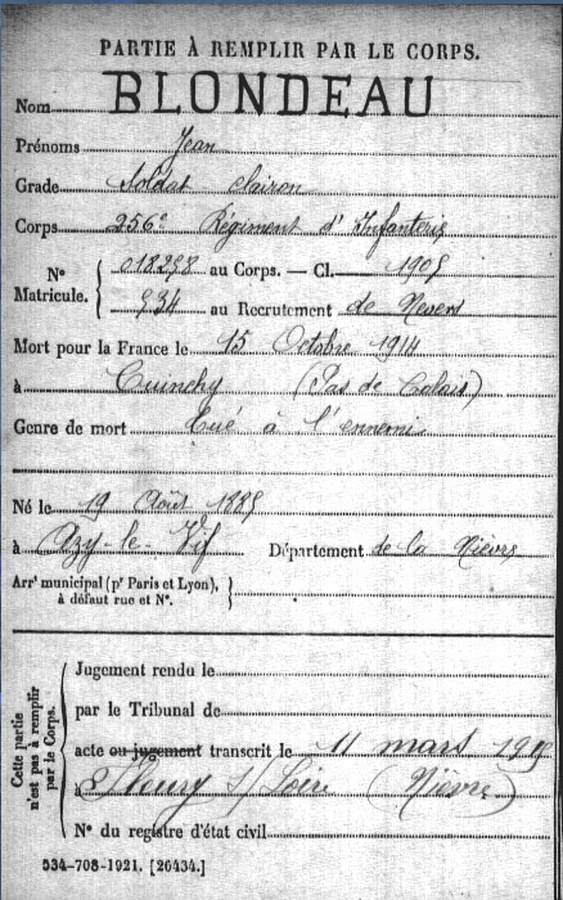 PARTIE À REMPLIR PAR LE CORPS.
Nom BLONDEAU
Prénoms Jean
Grade Soldat clairon
Corps 256e Régiment d'Infanterie
Nº Matricule. { 018298 au Corps. — Cl. 1905
934 au Recrutement de Nevers
Mort pour la France le 15 Octobre 1914
à Cuinchy (Pas de Calais)
Genre de mort Tué à l'ennemi
Né le 19 Août 1885
à Azy-le-Vif Département de la Nièvre
Arrt municipal (pr Paris et Lyon), }
à défaut rue et Nº.
Cette partie n'est pas à remplir par le Corps.
Jugement rendu le
par le Tribunal de
acte ou jugement transcrit le 11 mars 1915
à Fleury s/ Loire (Nièvre)
Nº du registre d'état civil
534-708-1921. [26434.]